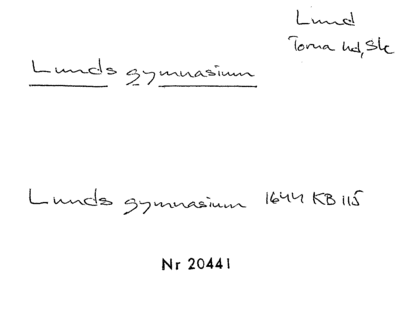 Lund
Torna hd, Sk
Lunds gymnasium
Lunds gymnasium 1644 KB 115
Nr 20441